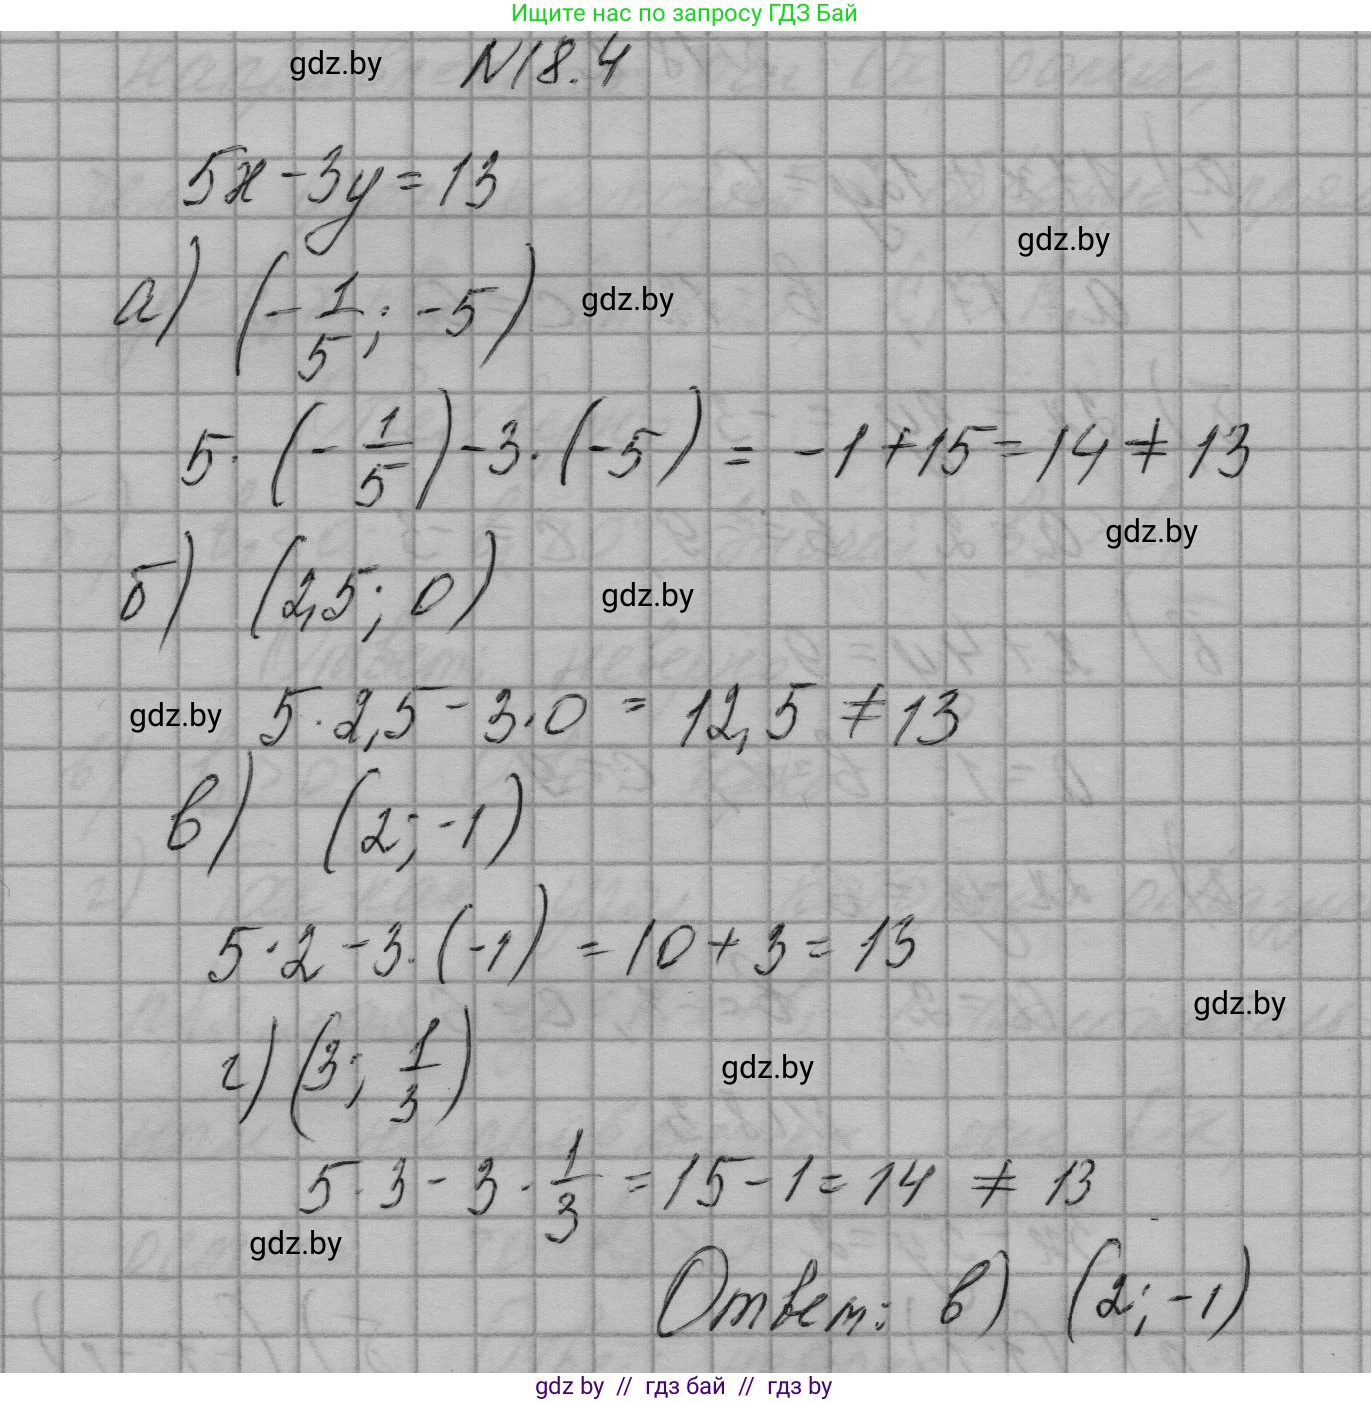 Ищите нас по запросу ГДЗ Бай
gdz.by N18.4
5x-3y=13
gdz.by
а) (-1/5; -5) gdz.by
5·(-1/5)-3·(-5) = -1+15=14≠13
gdz.by
б) (2,5; 0) gdz.by
gdz.by 5·2,5-3·0 = 12,5 ≠13
в) (2; -1)
5·2-3·(-1) =10+3=13
gdz.by
г) (3; 1/3) gdz.by
5·3-3·1/3 =15-1=14 ≠ 13
gdz.by
Ответ: в) (2; -1)
gdz by // гдз бай // гдз by